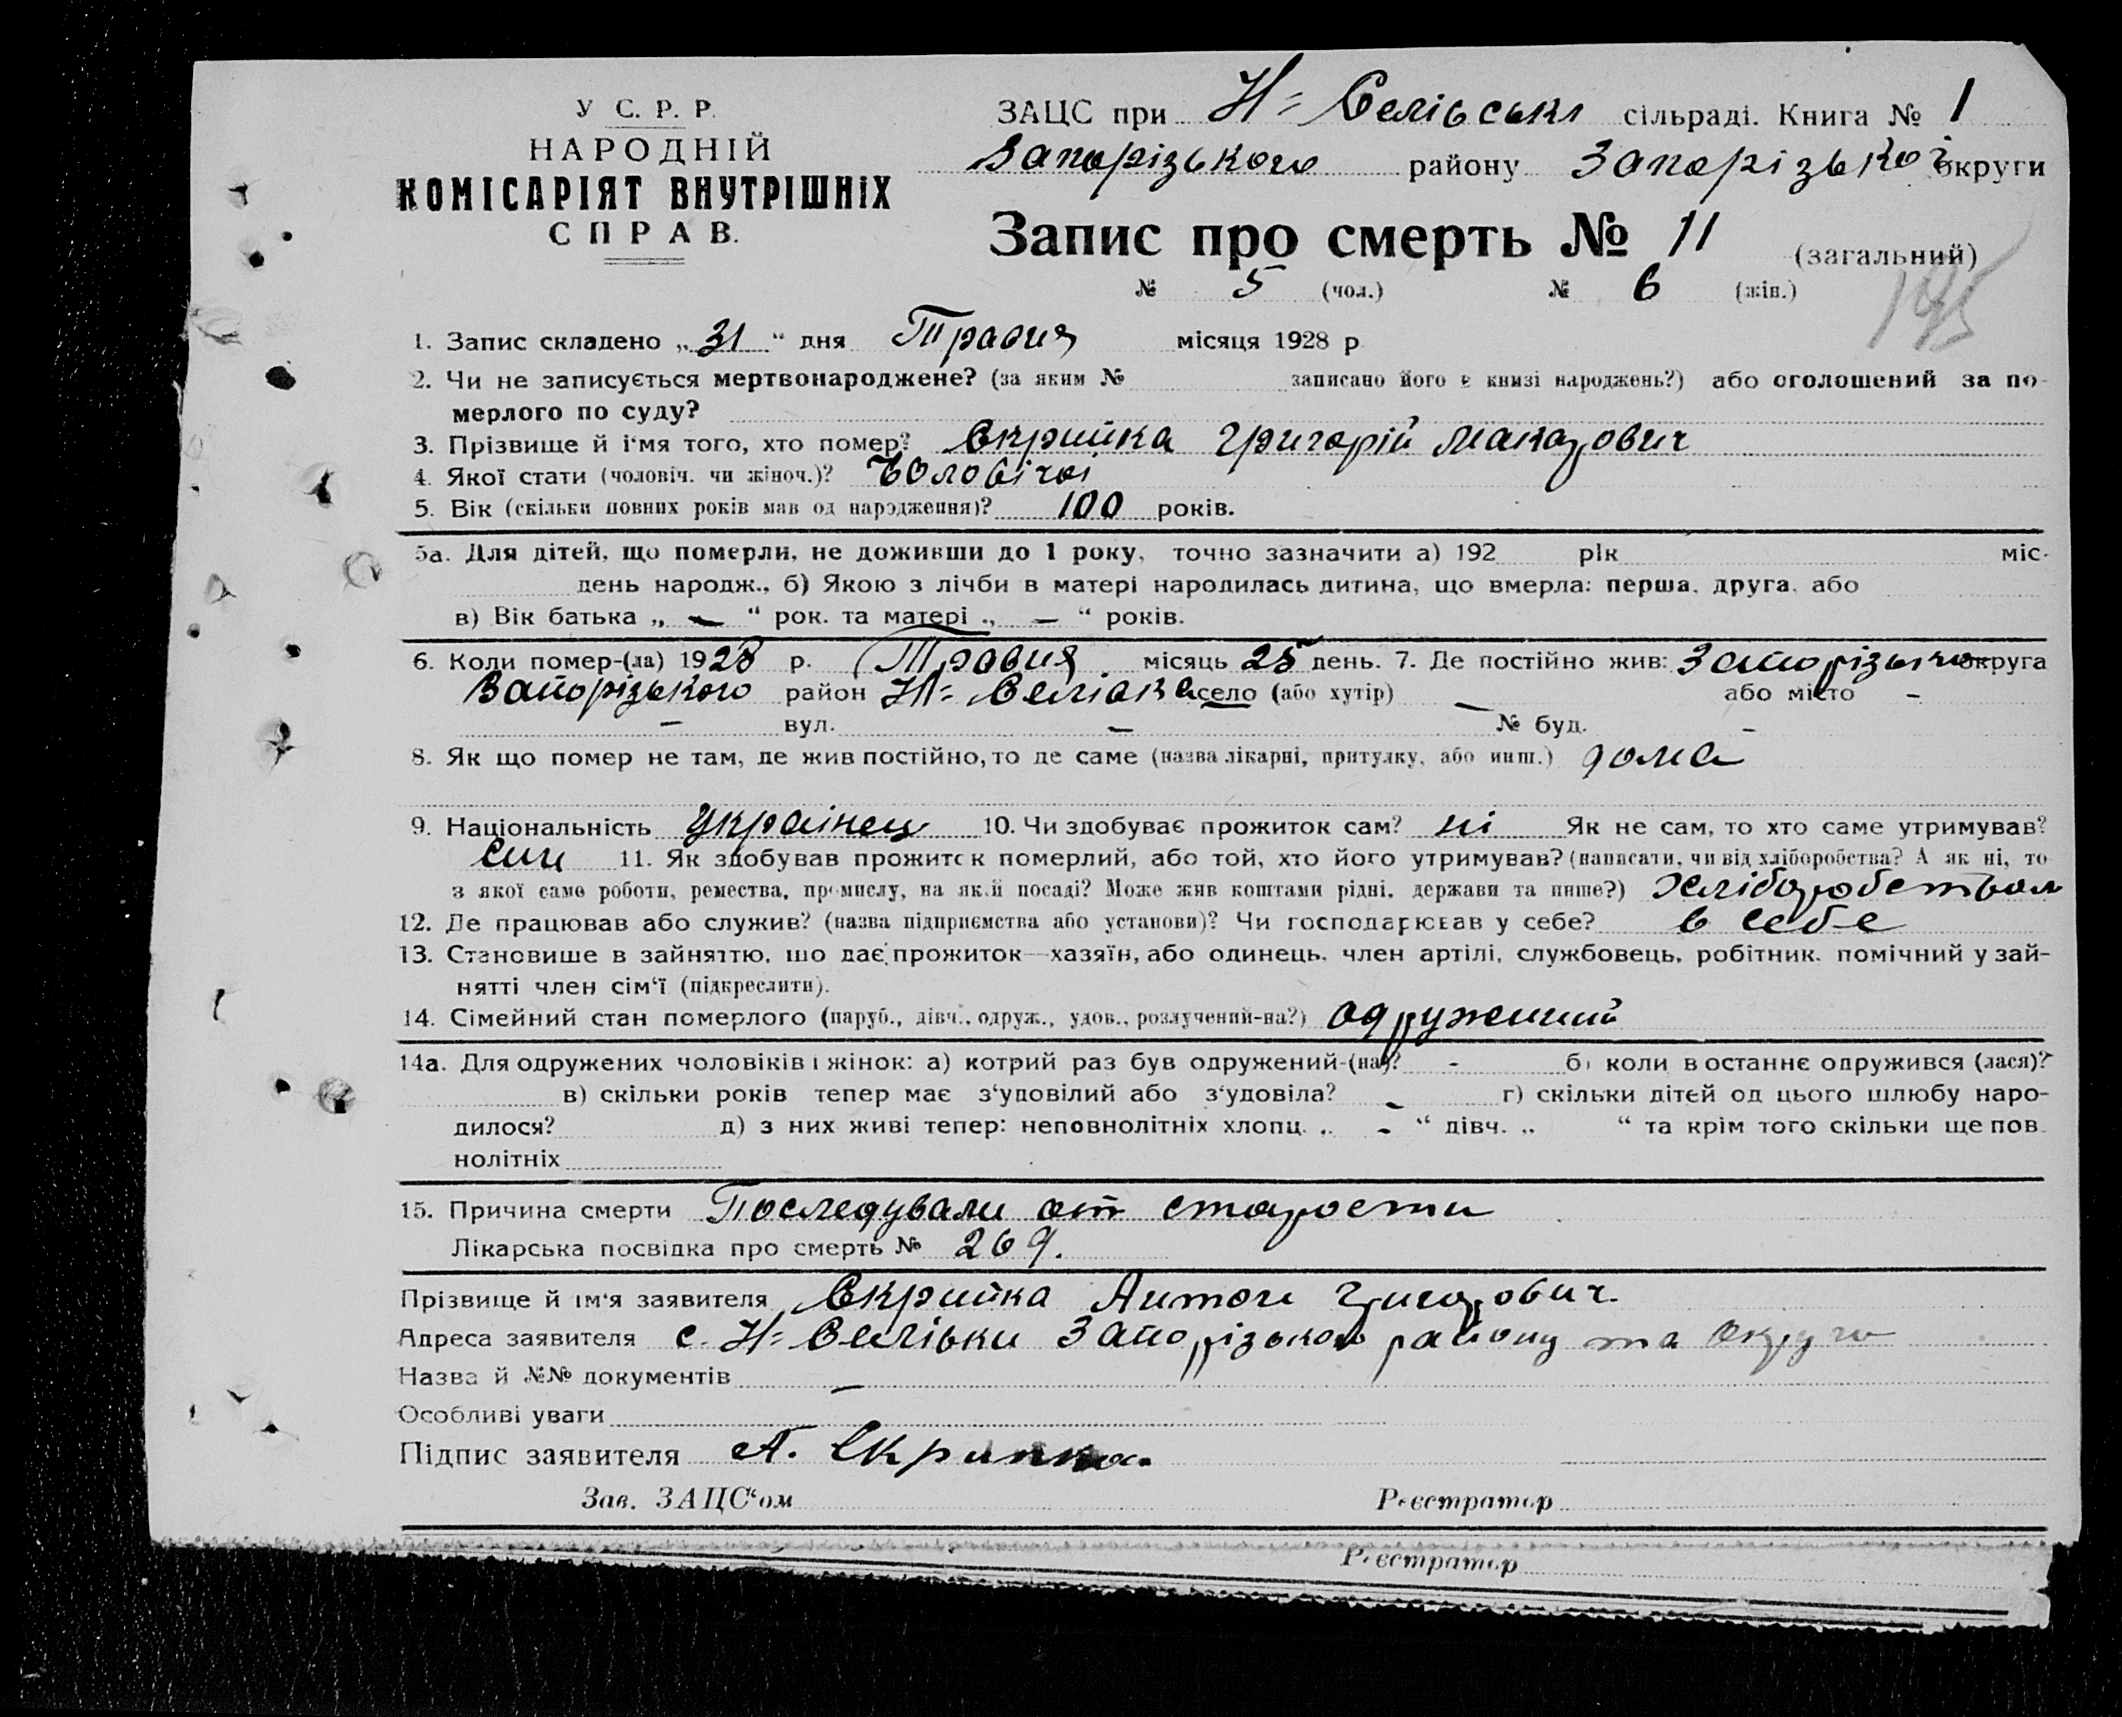 У С. Р. Р.
НАРОДНІЙ
КОМІСАРІЯТ ВНУТРІШНІХ
СПРАВ.
ЗАЦС при Н=Велівські сільраді. Книга № 1
Запорізького району Запорізької округи
Запис про смерть № 11 (загальний)
№ 5 (чол.) № 6 (жін.)
195
1. Запис складено „31“ дня Травня місяця 1928 р
2. Чи не записується мертвонароджене? (за яким № записано його в книзі народжень?) або оголошений за по-
мерлого по суду?
3. Прізвище й і'мя того, хто помер? Скрипка Григорій Макарович
4. Якої стати (чоловіч. чи жіноч.)? Чоловічої
5. Вік (скільки повних років мав од народження)? 100 років.
5а. Для дітей, що померли, не доживши до 1 року, точно зазначити а) 192 рік міс.
день народж., б) Якою з лічби в матері народилась дитина, що вмерла: перша, друга, або
в) Вік батька „ — “ рок. та матері „ — “ років.
6. Коли помер-(ла) 1928 р. Травня місяць 25 день. 7. Де постійно жив: Запорізького округа
Запорізького район Н= село (або хутір) — або місто -
— вул. — № буд. -
8. Як що помер не там, де жив постійно, то де саме (назва лікарні, притулку, або инш.) дома
9. Національність Українец 10. Чи здобуває прожиток сам? ні Як не сам, то хто саме утримував?
син 11. Як здобував прожиток померлий, або той, хто його утримував? (написати, чи від хліборобства? А як ні, то
з якої саме роботи, ремества, промислу, на якій посаді? Може жив коштами рідні, держави та инше?) Хліборобством
12. Де працював або служив? (назва підприємства або установи)? Чи господарював у себе? в себе
13. Становище в зайняттю, що дає прожиток—хазяїн, або одинець, член артілі, службовець, робітник, помічний у зай-
нятті член сім'ї (підкреслити).
14. Сімейний стан померлого (паруб., дівч., одруж., удов., розлучений-на?) одружений
14а. Для одружених чоловіків і жінок: а) котрий раз був одружений-(на)? - б) коли в останнє одружився (лася)?
в) скільки років тепер має з'удовілий або з'удовіла? - г) скільки дітей од цього шлюбу наро-
дилося? д) з них живі тепер: неповнолітніх хлопц. „ - “ дівч. „ “ та крім того скільки ще пов
нолітніх
15. Причина смерти Последували от старости
Лікарська посвідка про смерть № 269.
Прізвище й ім'я заявителя Скрипка Антон Григорович.
Адреса заявителя с. Н=Велівки Запорізького району та округи
Назва й №№ документів —
Особливі уваги
Підпис заявителя А. Скрипка.
Зав. ЗАЦС“ом Реєстратор
Реєстратор